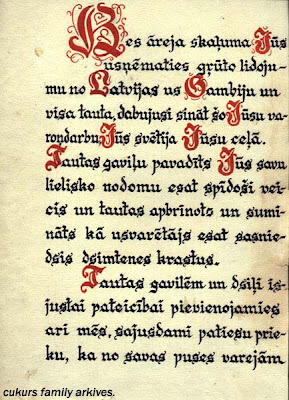 Bes āreja skaļuma Jūs
usņēmaties grūto lidoju-
mu no Latvijas us Gambiju un
visa tauta, dabujusi sināt šo Jūsu va-
roņdarbu, Jūs svētīja Jūsu ceļā.
Tautas gaviļu pavadīts Jūs savu
lielisko nodomu esat spīdoši vei-
cis un tautas apbrīnots un sumi-
nāts kā usvarētājs esat sasnie-
dsis dsimtenes krastus.
Tautas gavilēm un dsiļi is-
justai pateicībai pievienojamies
arī mēs, sajusdami patiesu prie-
ku, ka no savas puses varējām
cukurs family arkives.